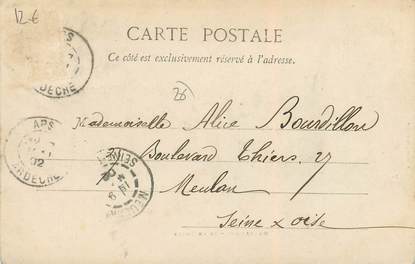 12 €
CARTE POSTALE
Ce côté est exclusivement réservé à l'adresse.
26
Mademoiselle Alice Bourdillon
Boulevard Thiers. 27
Meulan
Seine & oise
APS
ARDÈCHE
APS
02
ARDÈCHE